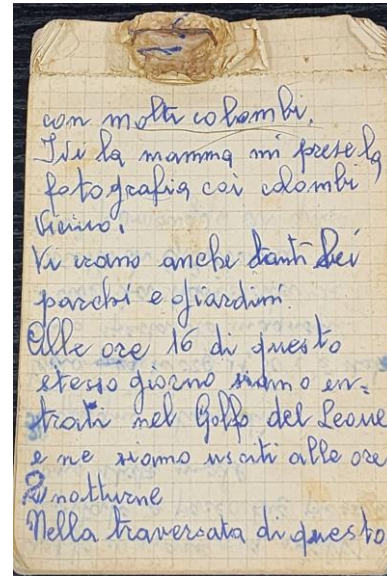 con molti colombi.
Ivi la mamma mi prese la
fotografia coi colombi
vicino.
Vi erano anche tanti bei
parchi e giardini
Alle ore 16 di questo
stesso giorno siamo en=
trati nel Golfo del Leone
e ne siamo usciti alle ore
2 notturne
Nella traversata di questo